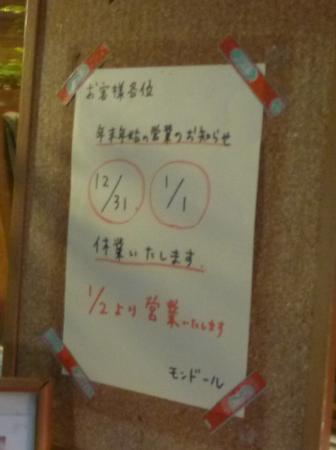 お客様各位
年末年始の営業のお知らせ
12/31 1/1
休業いたします.
1/2より営業いたします
モンドール